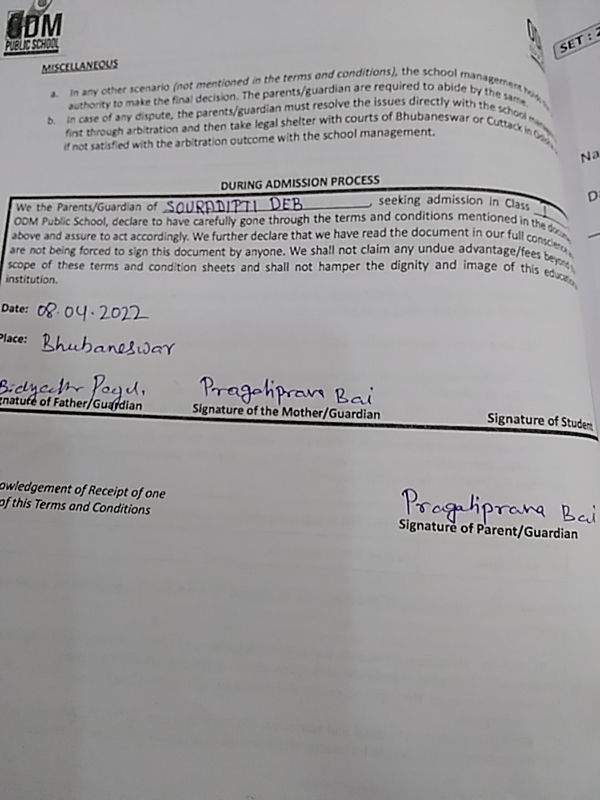 ODM
PUBLIC SCHOOL
SET : 2
MISCELLANEOUS
a. In any other scenario (not mentioned in the terms and conditions), the school management holds
authority to make the final decision. The parents/guardian are required to abide by the same.
b. In case of any dispute, the parents/guardian must resolve the issues directly with the school
first through arbitration and then take legal shelter with courts of Bhubaneswar or Cuttack in
if not satisfied with the arbitration outcome with the school management.
Na
D
DURING ADMISSION PROCESS
We the Parents/Guardian of SOURADIPTI DEB, seeking admission in Class I
ODM Public School, declare to have carefully gone through the terms and conditions mentioned in the docu
above and assure to act accordingly. We further declare that we have read the document in our full conscience
are not being forced to sign this document by anyone. We shall not claim any undue advantage/fees beyond
scope of these terms and condition sheets and shall not hamper the dignity and image of this education
institution.
Date: 08.04.2022
Place: Bhubaneswar
Pragatiprava Bai
gnature of Father/Guardian Signature of the Mother/Guardian Signature of Student
owledgement of Receipt of one
of this Terms and Conditions
Pragatiprava Bai
Signature of Parent/Guardian